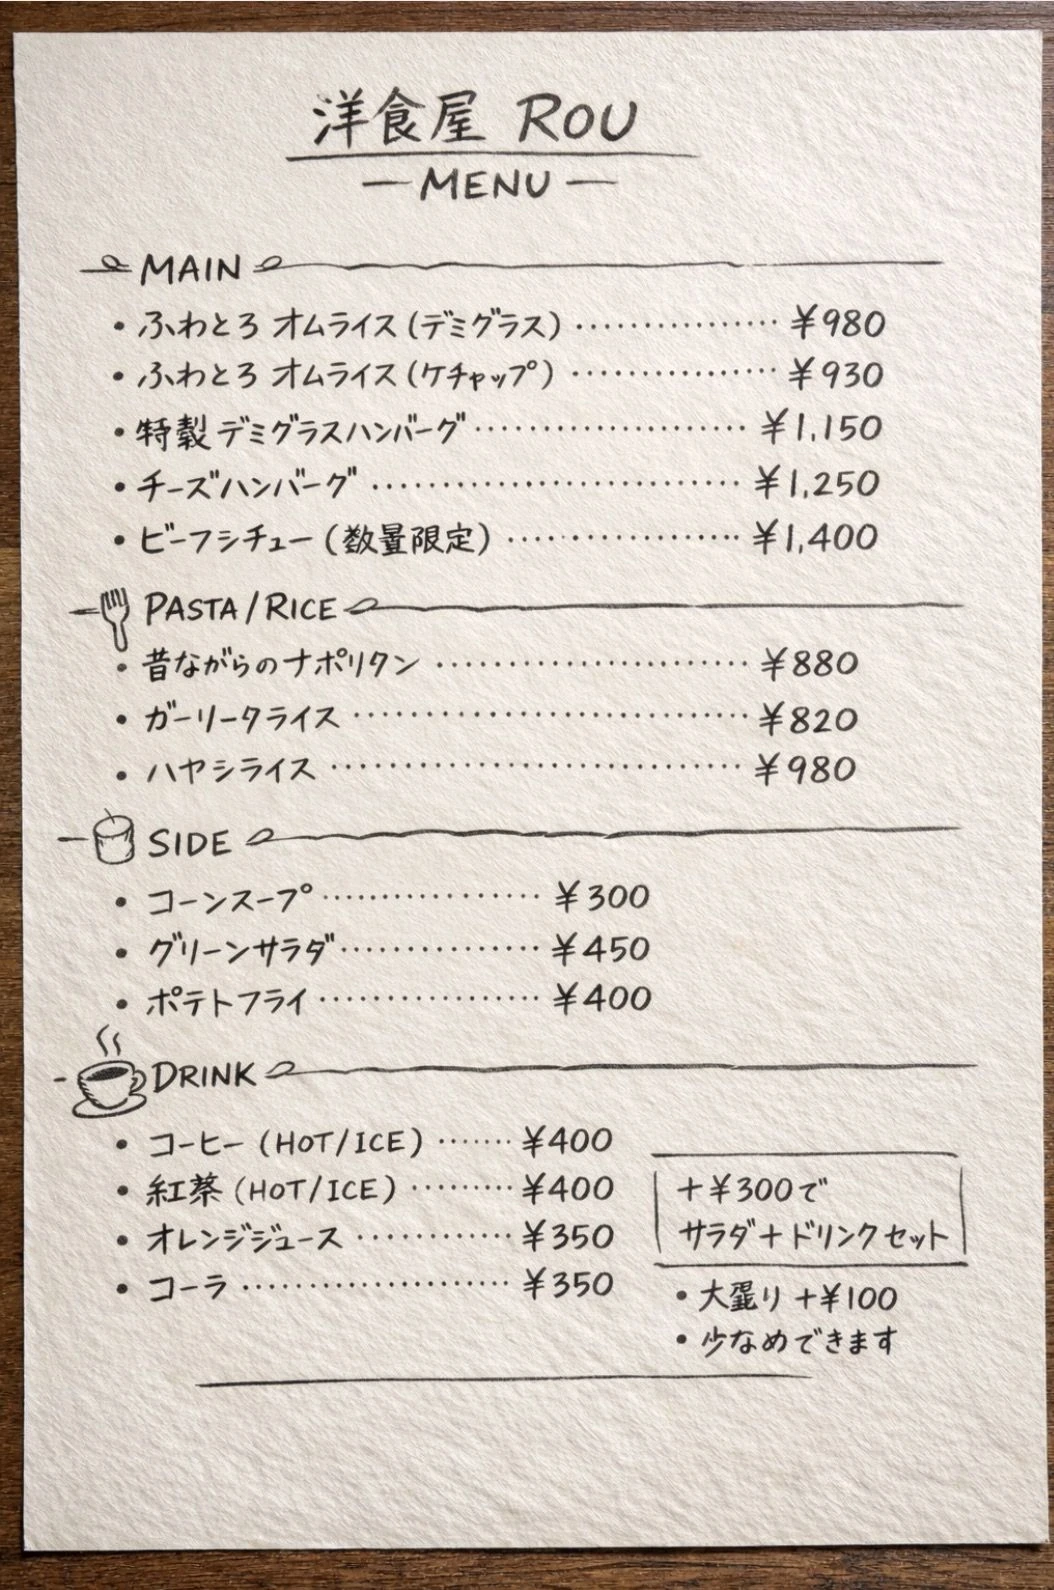 洋食屋 ROU
— MENU —
MAIN
・ふわとろ オムライス(デミグラス) ¥980
・ふわとろ オムライス(ケチャップ) ¥930
・特製デミグラスハンバーグ ¥1,150
・チーズハンバーグ ¥1,250
・ビーフシチュー(数量限定) ¥1,400
PASTA/RICE
・昔ながらのナポリタン ¥880
・ガーリークライス ¥820
・ハヤシライス ¥980
SIDE
・コーンスープ ¥300
・グリーンサラダ ¥450
・ポテトフライ ¥400
DRINK
・コーヒー(HOT/ICE) ¥400
・紅茶(HOT/ICE) ¥400
・オレンジジュース ¥350
・コーラ ¥350
+¥300で
サラダ+ドリンクセット
・大盛り+¥100
・少なめできます